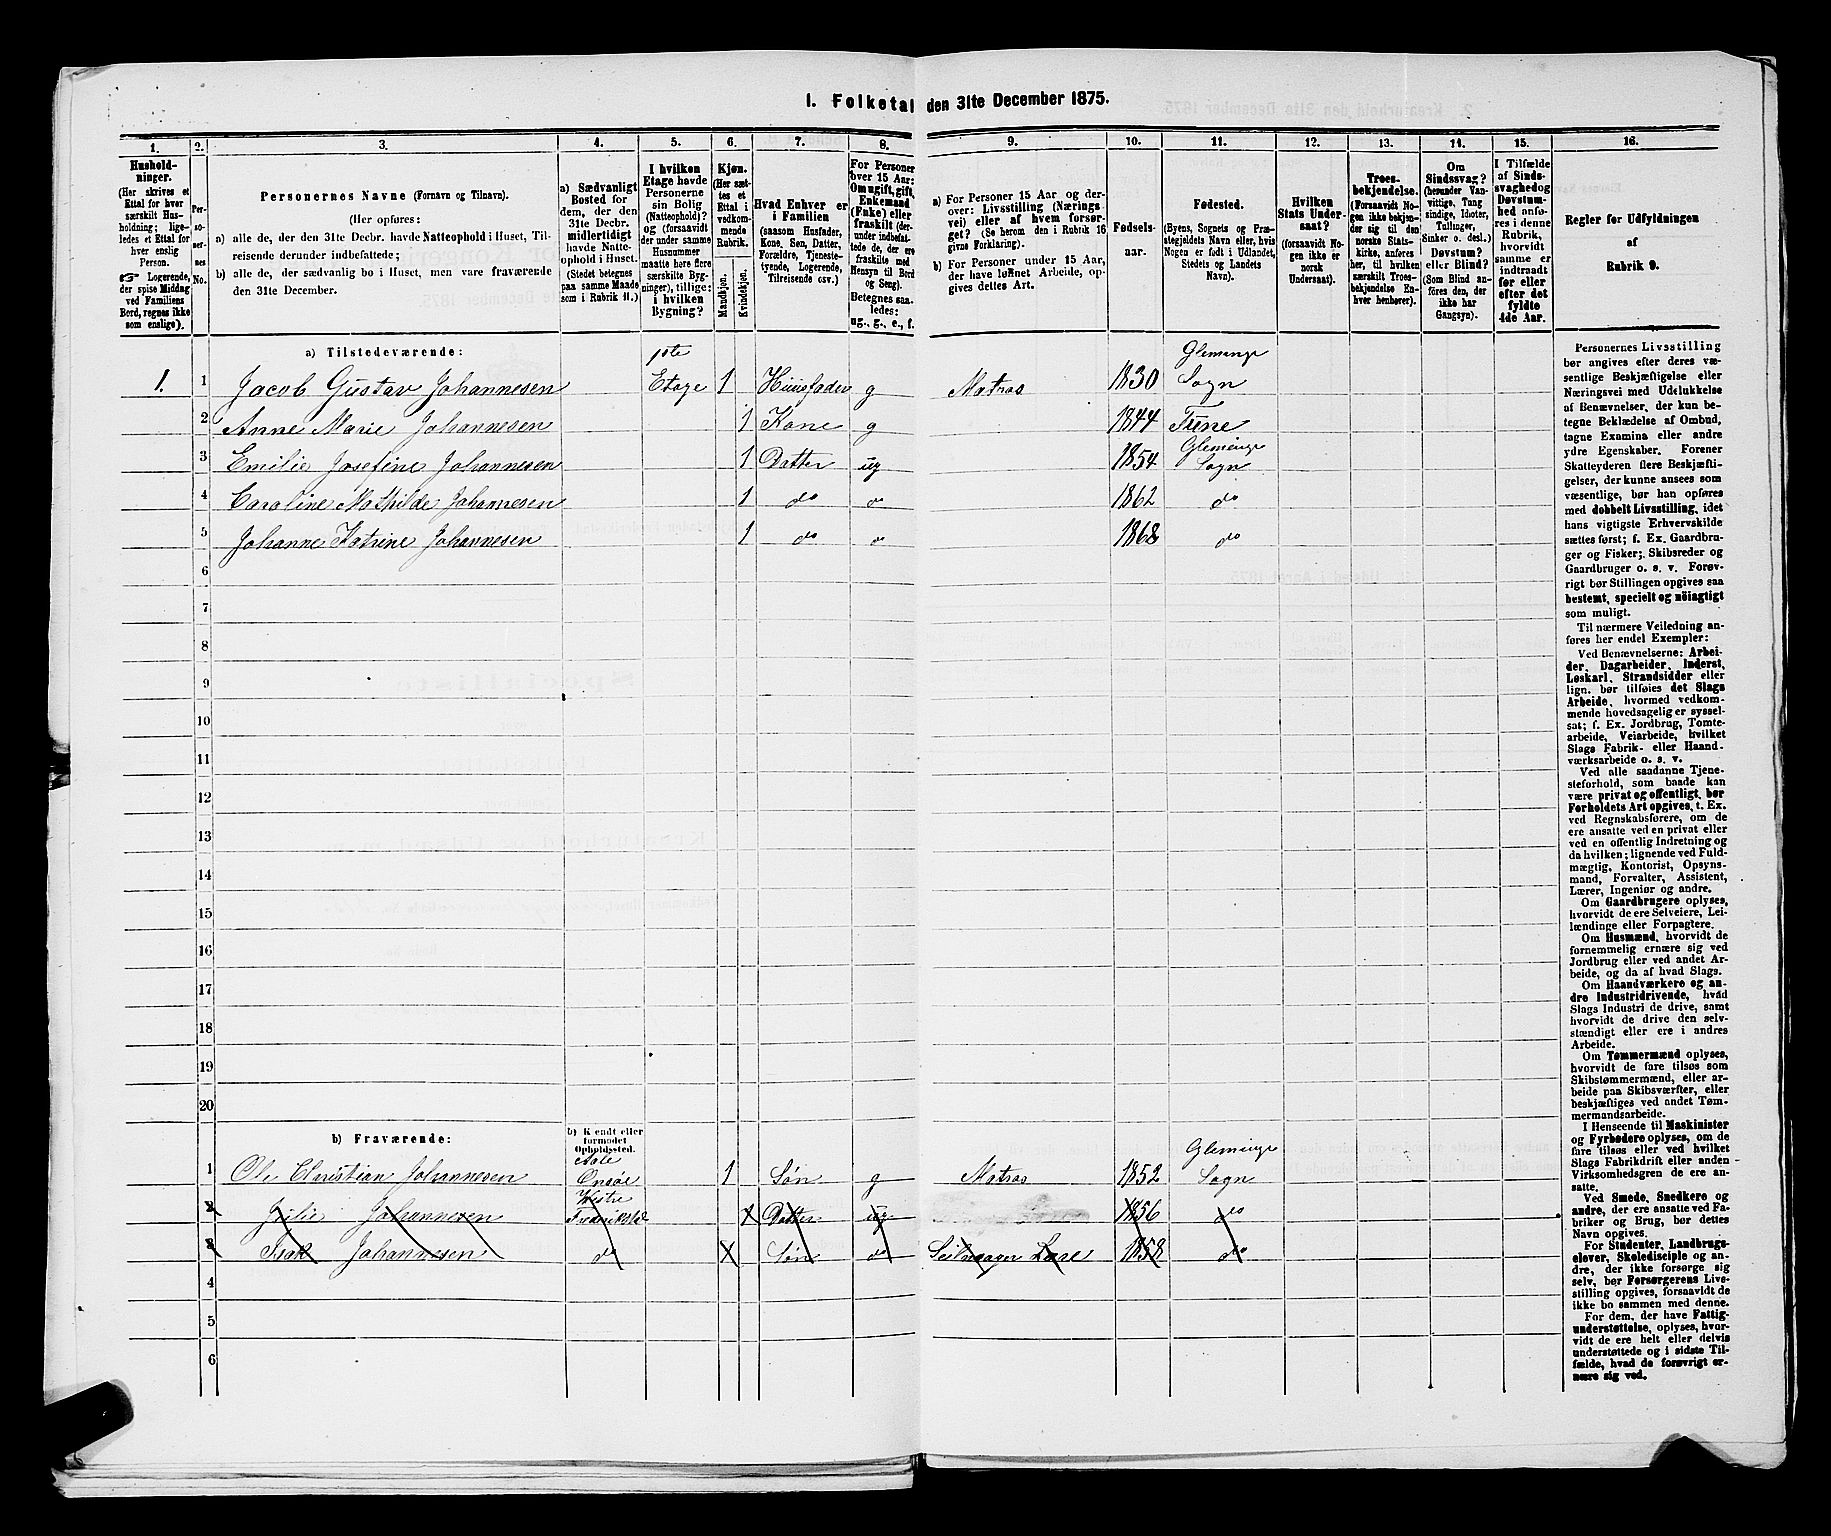 1. Folketal den 31te December 1875.
1. 2. 3. 4. 5. 6. 7. 8. 9. 10. 11. 12. 13. 14. 15. 16.
Hushold-
ninger.
(Her skrives et
Ettal for hver
særskilt Hus-
holdning; lige-
ledes et Ettal for
hver enslig
Person.
Logerende,
der spise Middag
ved Familiens
Bord, regnes ikke
som enslige).
Per-
so-
ner-
nes
No.
Personernes Navne (Fornavn og Tilnavn).
(Her opføres:
a) alle de, der den 31te Decbr. havde Natteophold i Huset, Til-
reisende derunder indbefattede;
b) alle de, der sædvanlig bo i Huset, men vare fraværende
den 31te December.
a) Sædvanligt
Bosted for
dem, der den
31te Decbr.
midlertidigt
havde Natte-
ophold i Huset.
(Stedet betegnes
paa samme Maade
som i Rubrik 11.)
I hvilken
Etage havde
Personerne
sin Bolig
(Natteophold)?
og (forsaavidt
der under samme
Husnummer
maatte høre flere
særskilte Byg-
ninger), tillige:
i hvilken
Bygning?
Kjøn.
(Her sæt-
tes et
Ettal i
vedkom-
mende
Rubrik.
Mandkjøn.
Kvindekjøn.
Hvad Enhver er
i Familien
(saasom Husfader,
Kone, Søn, Datter,
Forældre, Tjeneste-
tyende, Logerende,
Tilreisende osv.)
For Personer
over 15 Aar:
Om ugift, gift,
Enkemand
(Enke) eller
fraskilt (der-
under indbefat-
tede de, der ere
fraskilte med
Hensyn til Bord
og Seng).
Betegnes saa-
ledes:
ug., g., e., f.
a) For Personer 15 Aar og der-
over: Livsstilling (Nærings-
vei) eller af hvem forsør-
get? (Se herom den i Rubrik 16
givne Forklaring).
b) For Personer under 15 Aar,
der have lønnet Arbeide, op-
gives dettes Art.
Fødsels-
aar.
Fødested.
(Byens, Sognets og Præ-
stegjeldets Navn eller, hvis
Nogen er født i Udlandet,
Stedets og Landets
Navn).
Hvilken
Stats Under-
saat?
(forsaavidt No-
gen ikke er
norsk
Undersaat).
Troes-
bekjendelse.
(Forsaavidt No-
gen ikke bekjen-
der sig til den
norske Stats-
kirke, anføres
her, til hvilken
særskilt Troes-
bekjendelse En-
hver henhører).
Om
Sindssvag?
(herunder Van-
vittige, Tung-
sindige, Idioter,
Tullinger,
Sinker o. desl.)
Døvstum?
eller Blind?
(Som Blind an-
føres den, der
ikke har
Gangsyn).
I Tilfælde
af Sinds-
svaghed og
Døvstum-
hed anfø-
res i denne
Rubrik,
hvorvidt
samme er
indtraadt
før eller
efter det
fyldte
4de Aar.
Regler for Udfyldningen
af
Rubrik 9.
a) Tilstedeværende:
1. 1 Jacob Gustav Johannesen 1ste Etage 1 Huusfader g Matros 1830 Gleminge Sogn
2 Anne Marie Johannesen 1 Kone g 1844 Tune
3 Emilie Josefine Johannesen 1 Datter ug 1854 Gleminge Sogn
4 Caroline Mathilde Johannesen 1 do do 1862 do
5 Johanne Katrine Johannesen 1 do do 1868 do
6
7
8
9
10
11
12
13
14
15
16
17
18
19
20
b) Fraværende:
b) Kjendt eller
formodet
Opholdssted.
1 Ole Christian Johannesen Onsøe 1 Søn g Matros 1852 Gleminge Sogn
2 Julie Johannesen Vestre Frederikstad 1 Datter ug 1856 do
3 Isak Johannesen do Søn do 1858 do
4
5
6
Personernes Livsstilling
bør angives efter deres væ-
sentlige Beskjæftigelse eller
Næringsvei med Udelukkelse
af Benævnelser, der kun be-
tegne Beklædelse af Ombud,
tagne Examina eller andre
ydre Egenskaber. Forener
Skatteyderen flere Beskjæfti-
gelser, der kunne ansees som
væsentlige, bør han opføres
med dobbelt Livsstilling, idet
hans vigtigste Erhvervskilde
sættes først; f. Ex. Gaardbru-
ger og Fisker; Skibsreder og
Gaardbruger o. s. v. Forøv-
rigt bør Stillingen opgives saa
bestemt, specielt og nøiagtigt
som muligt.
Til nærmere Veiledning an-
føres her endel Exempler:
Ved Benævnelserne: Arbei-
der, Dagarbeider, Inderst,
Løskarl, Strandsidder eller
lign. bør tilføies det Slags
Arbeide, hvormed vedkom-
mende hovedsagelig er syssel-
sat; f. Ex. Jordbrug, Tomte-
arbeide, Veiarbeide, hvilket
Slags Fabrik- eller Haand-
værksarbeide o. s. v.
Ved alle saadanne Tjene-
steforhold, som baade kan
være privat og offentligt, bør
Forholdets Art opgives, t. Ex.
ved Regnskabsførere, om de
ere ansatte ved en privat eller
ved en offentlig Indretning og
da hvilken; lignende ved Fuld-
mægtig, Kontorist, Opsyns-
mand, Forvalter, Assistent,
Lærer, Ingeniør og andre.
Om Gaardbrugere oplyses,
hvorvidt de ere Selveiere, Lei-
lændinge eller Forpagtere.
Om Husmænd, hvorvidt de
fornemmelig ernære sig ved
Jordbrug eller ved andet Ar-
beide, og da af hvad Slags.
Om Haandværkere og an-
dre Industridrivende, hvad
Slags Industri de drive, samt
hvorvidt de drive den selv-
stændigt eller ere i andres
Arbeide.
Om Tømmermænd oplyses,
hvorvidt de fare tilsøs som
Skibstømmermænd, eller ar-
beide paa Skibsværfter, eller
beskjæftiges ved andet Tøm-
mermandsarbeide.
I Henseende til Maskinister
og Fyrbødere oplyses, om de
fare tilsøs eller ved hvilket
Slags Fabrikdrift eller anden
Virksomhedsgren de ere an-
satte.
Ved Smede, Snedkere og
andre, der ere ansatte ved Fa-
briker og Brug, bør dettes
Navn opgives.
For Studenter, Landbrugs-
elever, Skoledisciple og an-
dre, der ikke forsørge sig
selv, bør Forsørgerens Livs-
stilling opgives, forsaavidt de
ikke bo sammen med denne.
For dem, der have Fattig-
understøttelse, oplyses, hvor-
vidt de ere helt eller delvis
understøttede og i sidste Til-
fælde, hvad de forøvrigt er-
nære sig ved.